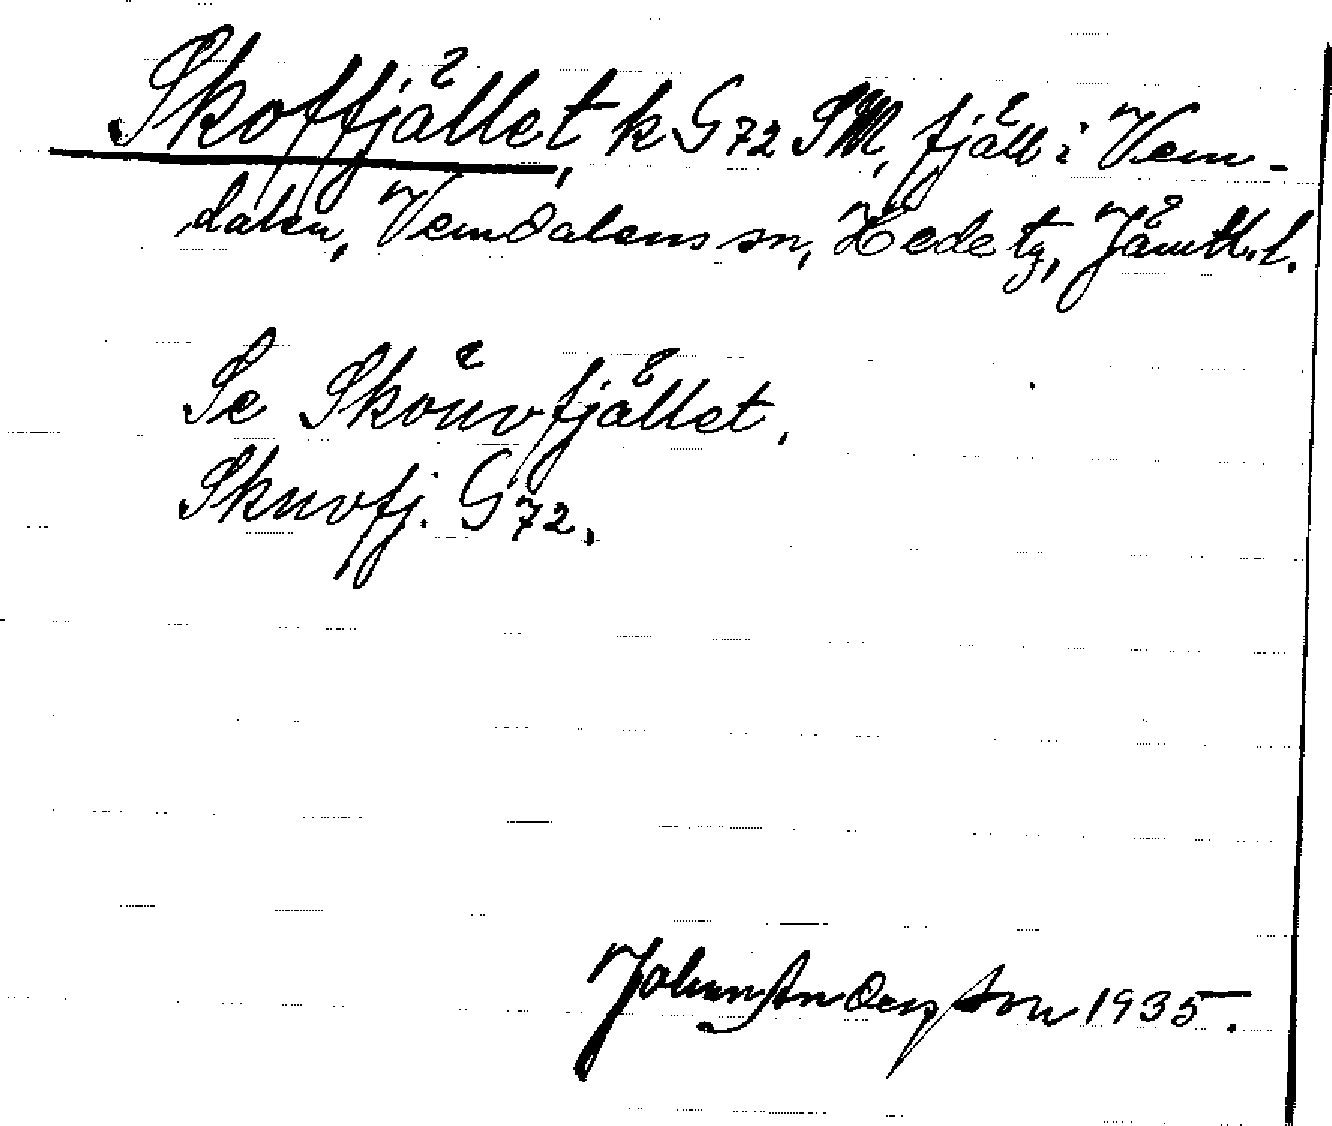 Skoffjället, k G 72 SM, fjäll i Vem-
dalen, Vemdalens sn, Hede tg, Jämtl. l.
Se Skouvfjället.
Skuvfj. G 72.
Johan Andersson 1935.